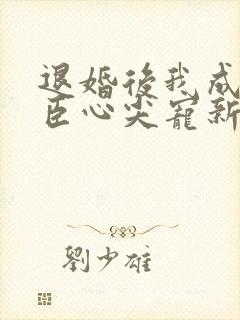 退婚後我成
臣心尖寵新
劉少雄